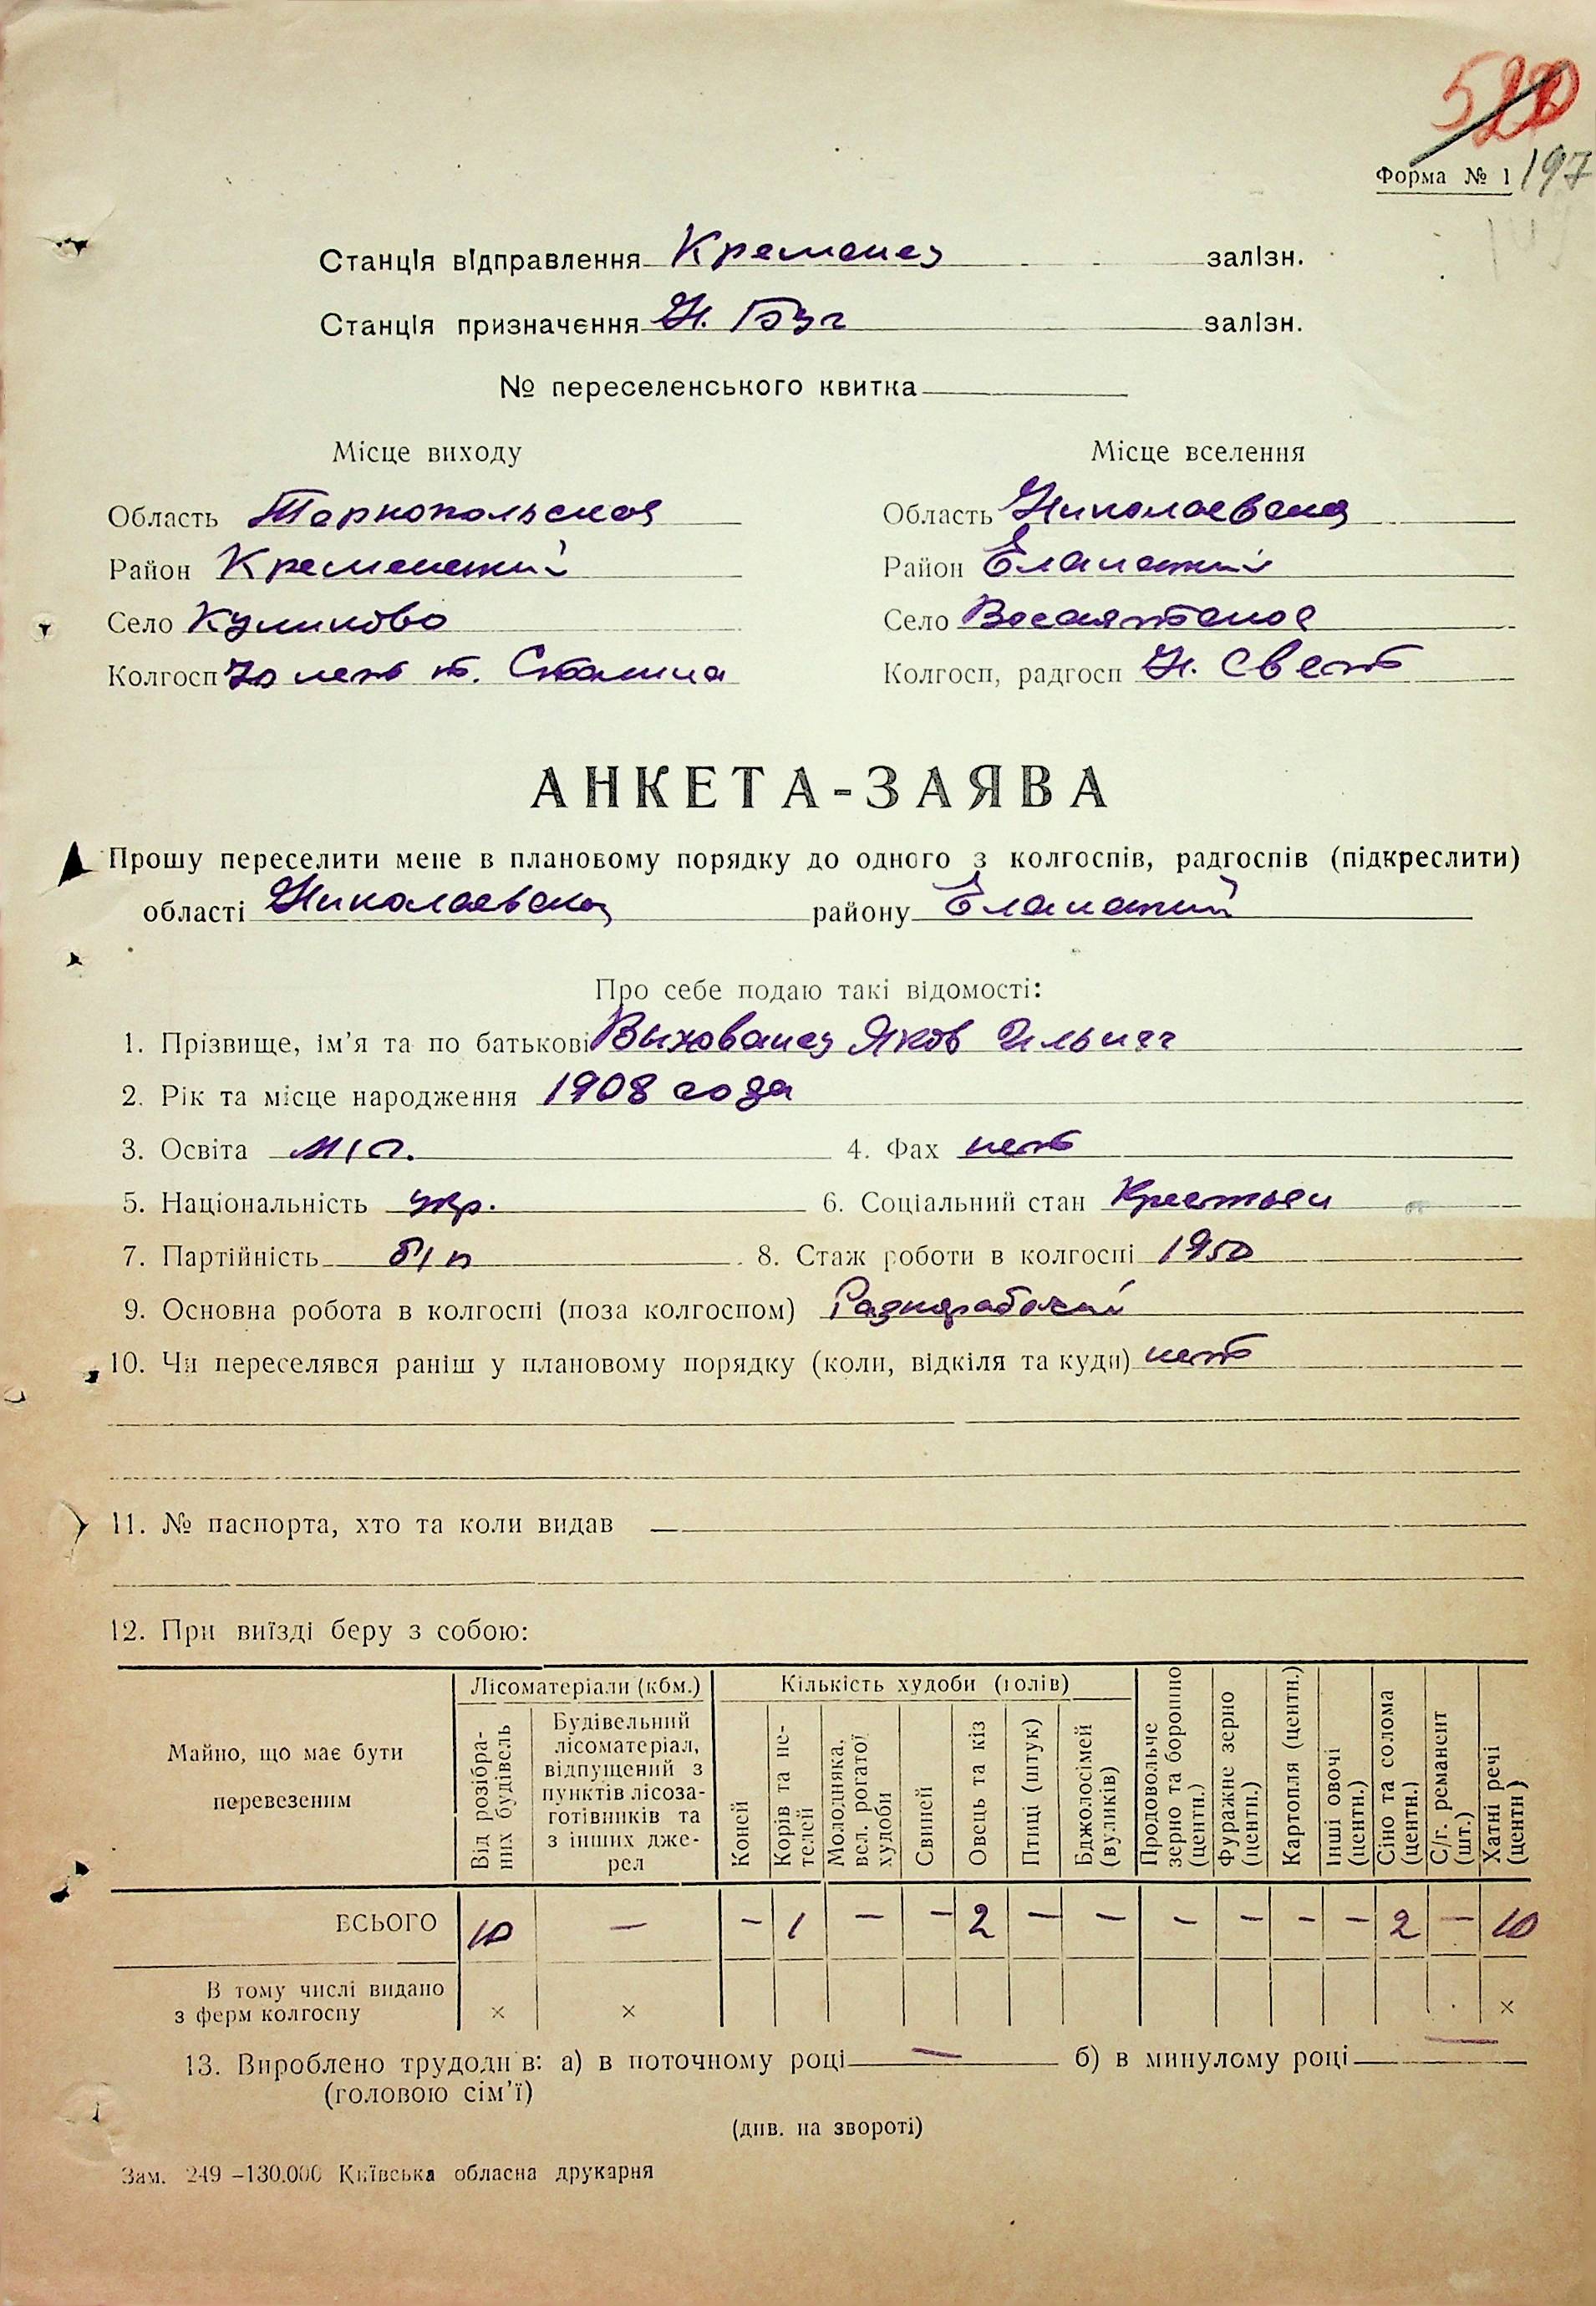 Форма № 1 197
Станція відправлення Кременец залізн.
Станція призначення Н. Буг залізн.
№ переселенського квитка
Місце виходу Місце вселення
Область Тарнопольская Область Николаевская
Район Кременецкий Район Еланецкий
Село Куликово Село
Колгосп 70 лет т. Сталина Колгосп, радгосп Н. Свет
АНКЕТА-ЗАЯВА
Прошу переселити мене в плановому порядку до одного з колгоспів, радгоспів (підкреслити)
області Николаевская району Еланецкий
Про себе подаю такі відомості:
1. Прізвище, ім’я та по батькові Выхованец Яков Ильич
2. Рік та місце народження 1908 года
3. Освіта м/г. 4. Фах нет
5. Національність укр. 6. Соціальний стан Крестьян
7. Партійність б/п 8. Стаж роботи в колгоспі 1950
9. Основна робота в колгоспі (поза колгоспом) Разнорабочий
10. Чи переселявся раніш у плановому порядку (коли, відкіля та куди) нет
11. № паспорта, хто та коли видав —
12. При виїзді беру з собою:
Майно, що має бути перевезеним
Лісоматеріали (кбм.)
Від розібра-
них будівель
Будівельний
лісоматеріал,
відпущений з
пунктів лісоза-
готівників та
з інших дже-
рел
Кількість худоби (голів)
Коней
Корів та не-
телей
Молодняка,
вел. рогатої
худоби
Свиней
Овець та кіз
Птиці (штук)
Бджолосімей
(вуликів)
Продовольче
зерно та борошно
(центн.)
Фуражне зерно
(центн.)
Картопля (центн.)
Інші овочі
(центн.)
Сіно та солома
(центн.)
С/г. реманент
(шт.)
Хатні речі
(центн)
ВСЬОГО 10 — — 1 — — 2 — — — — — — 2 — 10
В тому числі видано
з ферм колгоспу × × ×
13. Вироблено трудоднів: а) в поточному році — б) в минулому році —
(головою сім’ї)
(див. на звороті)
Зам. 249 –130.000 Київська обласна друкарня